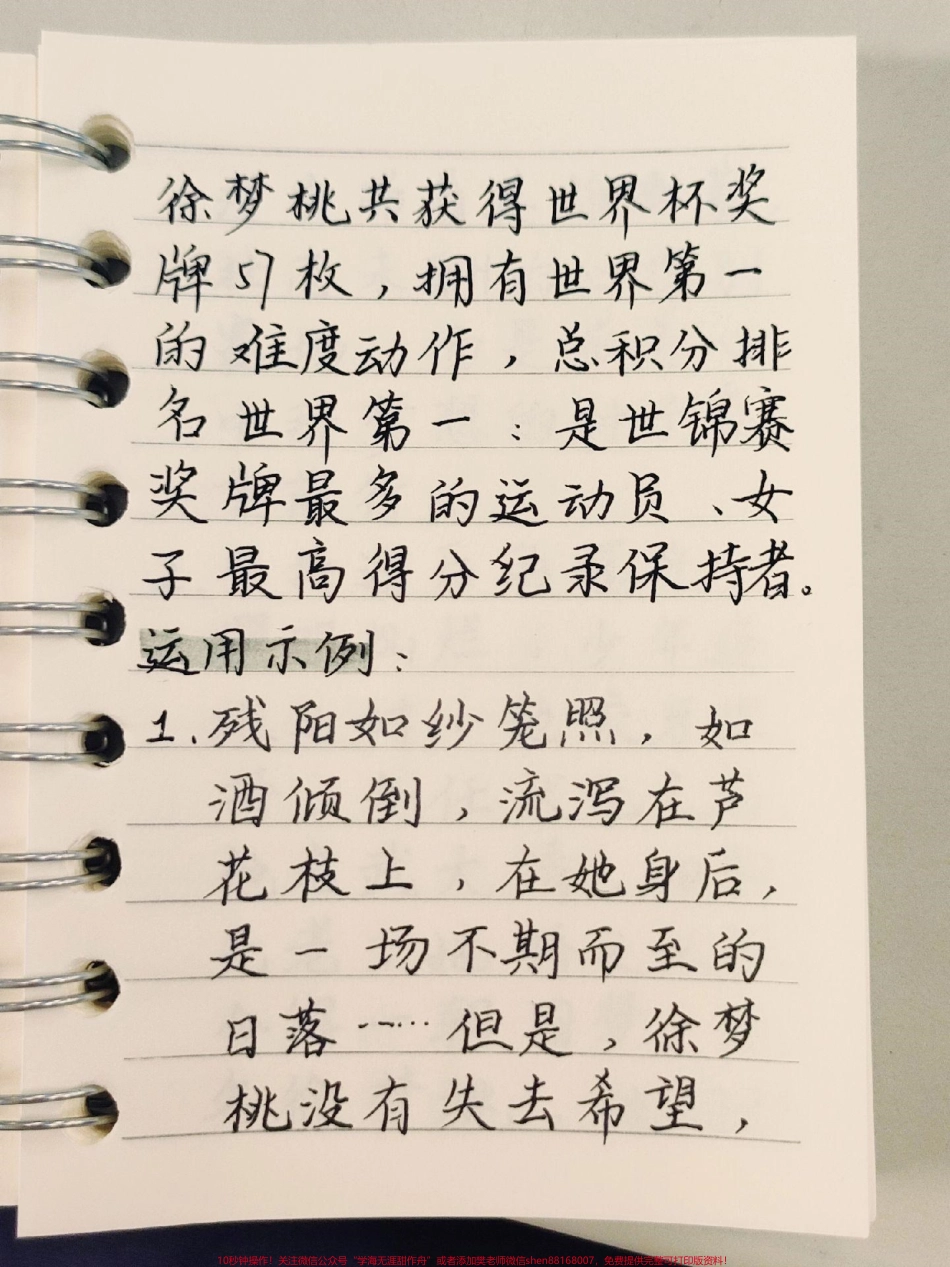 徐梦桃共获得世界杯奖
牌57枚，拥有世界第一
的难度动作，总积分排
名世界第一；是世锦赛
奖牌最多的运动员、女
子最高得分纪录保持者。
运用示例：
1.残阳如纱笼照，如
酒倾倒，流泻在芦
花枝上，在她身后，
是一场不期而至的
日落……但是，徐梦
桃没有失去希望，
10秒钟操作！关注微信公众号“学海无涯甜作舟”或者添加吴老师微信shen88168007，免费提供完整可打印版资料！